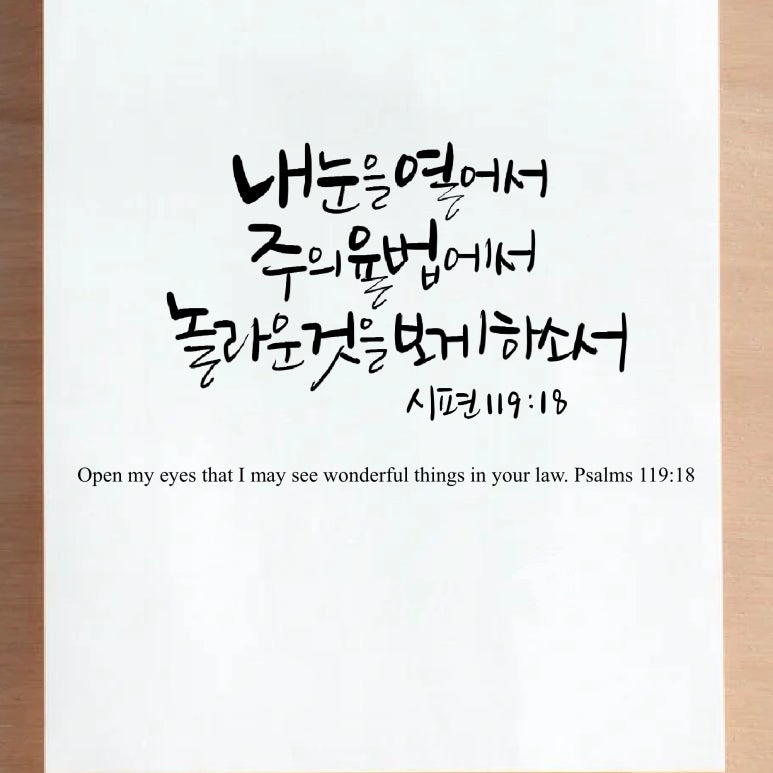 내 눈을 열어서
주의 율법에서
놀라운 것을 보게 하소서
시편 119:18
Open my eyes that I may see wonderful things in your law. Psalms 119:18